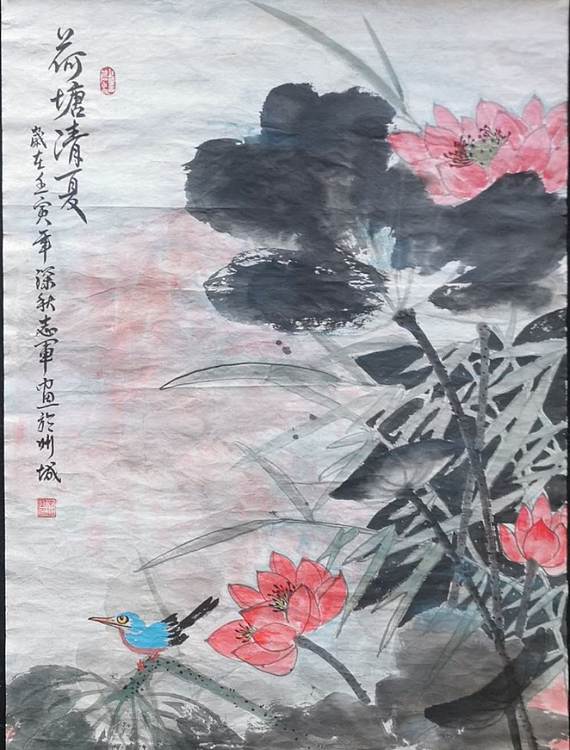 荷塘清夏
歲在壬寅年深秋志軍畫於州城